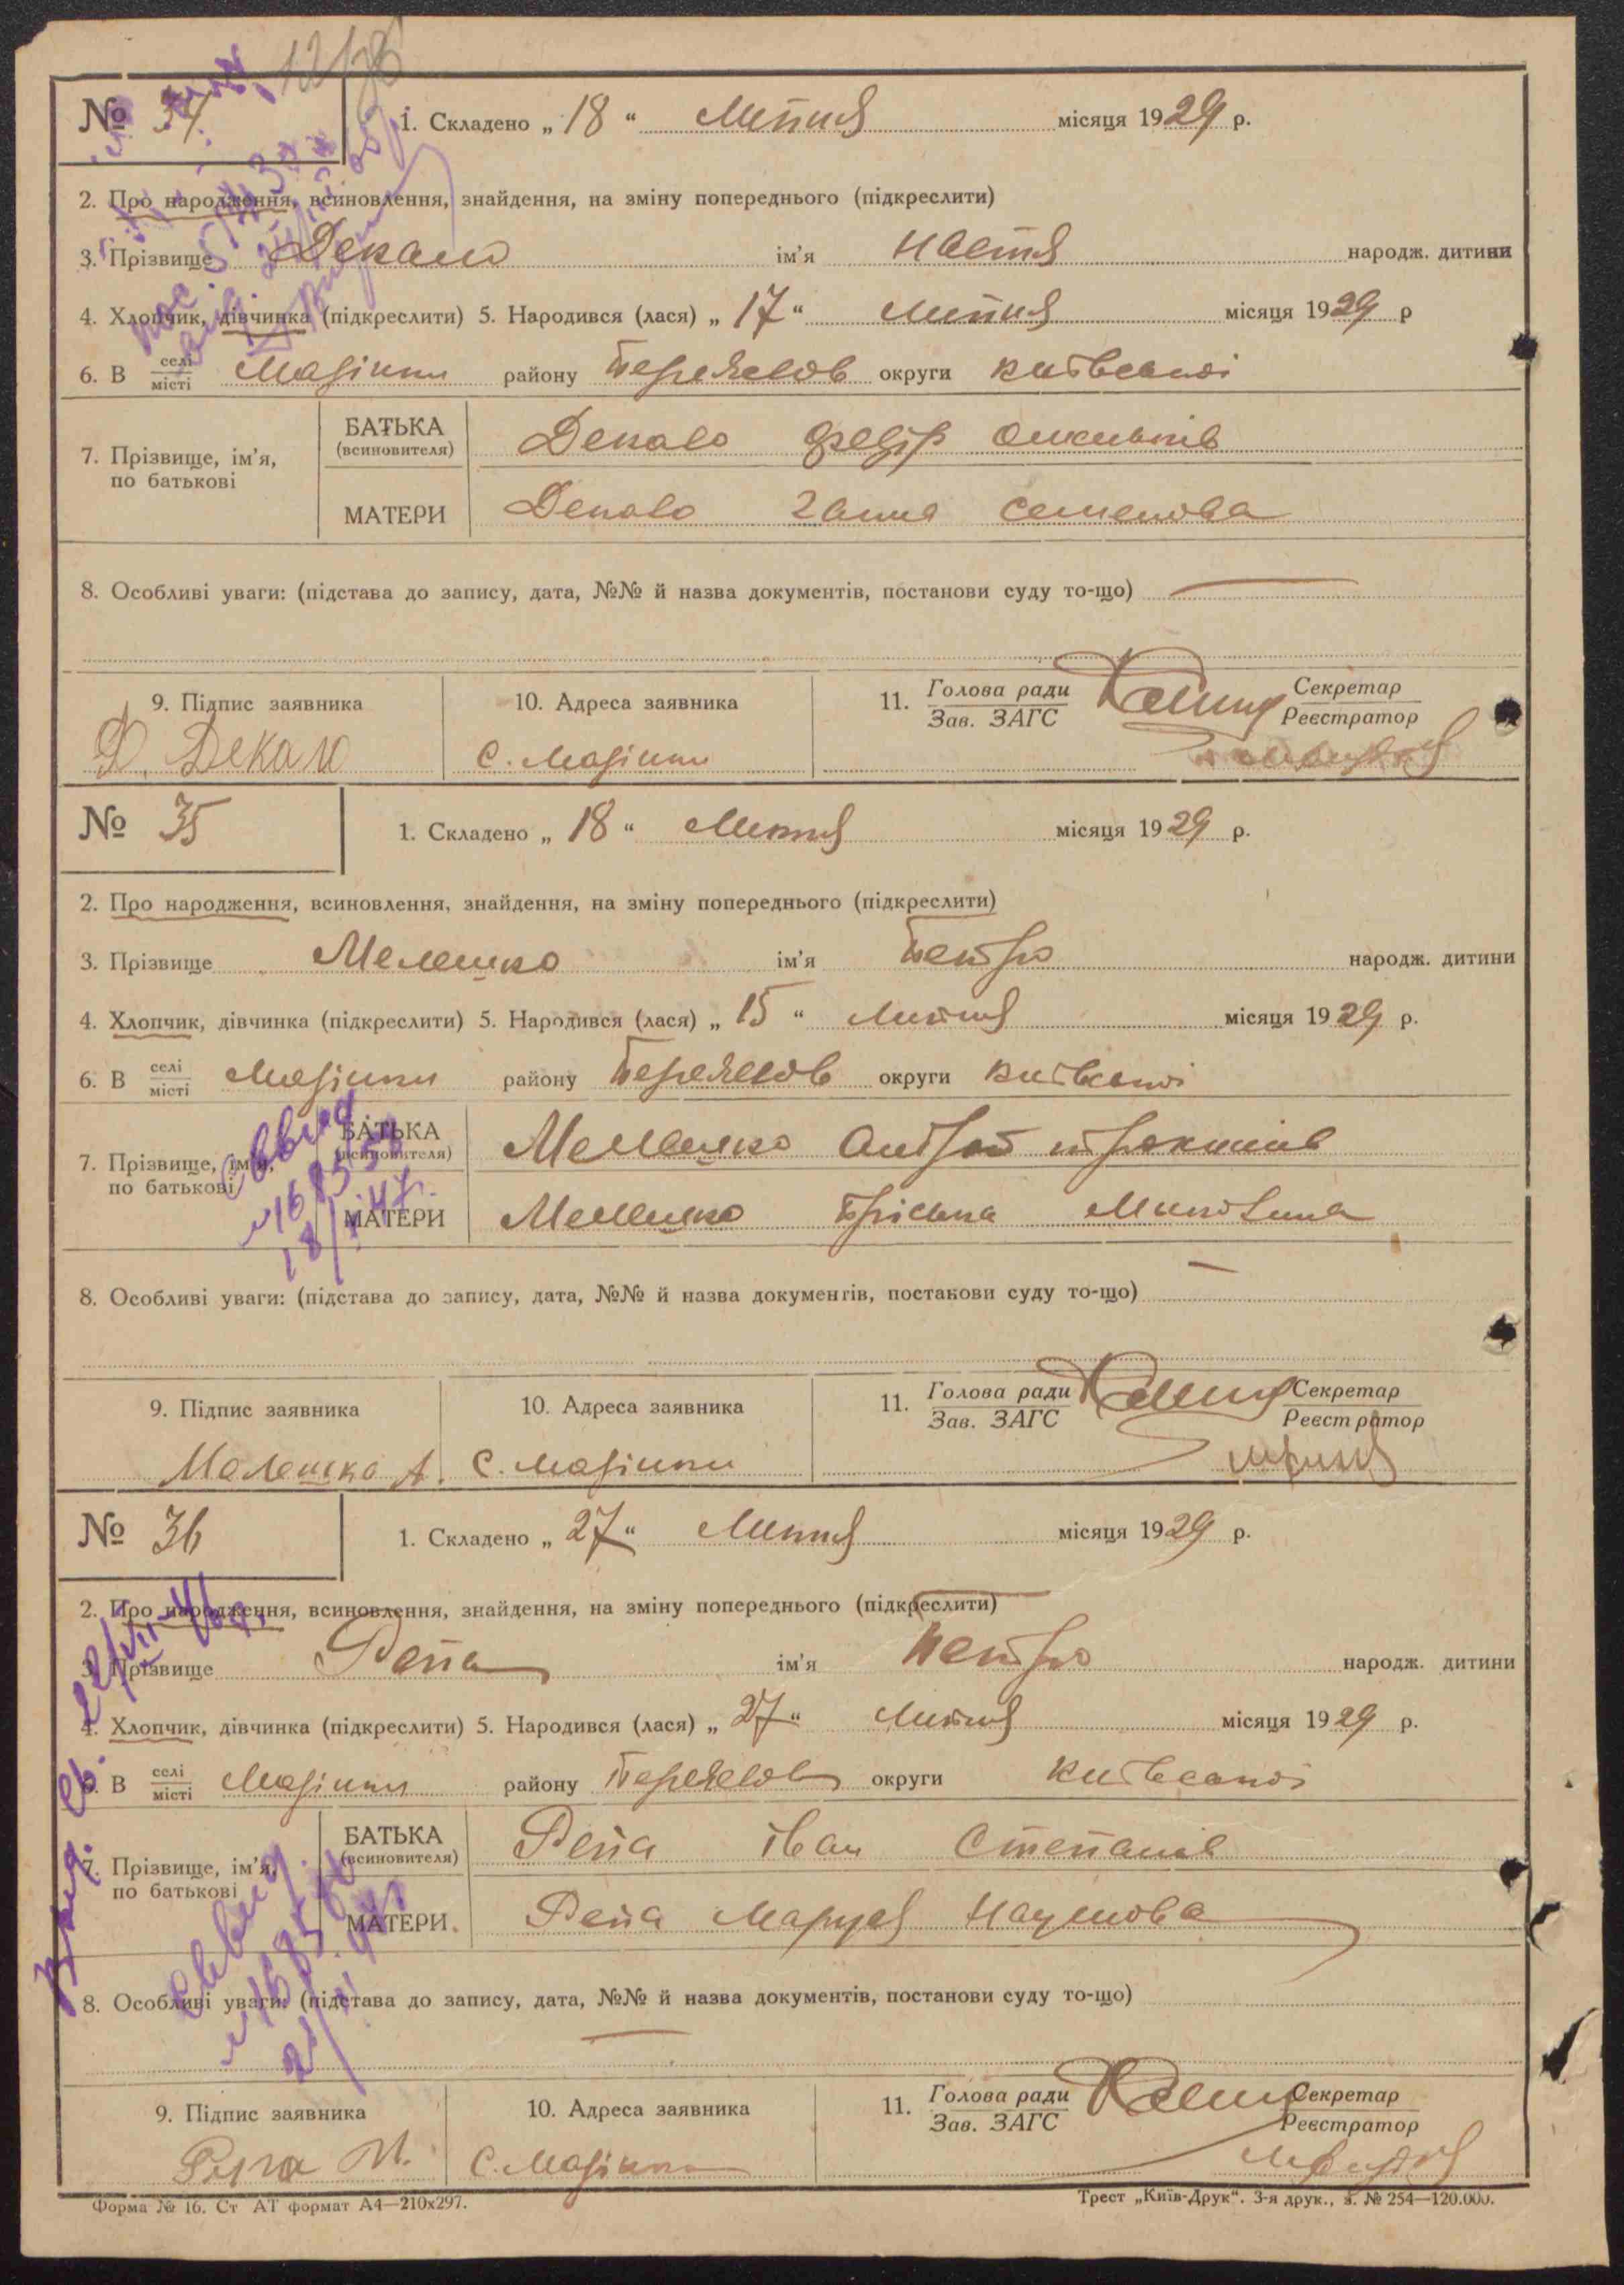 № 34
1. Складено „ 18 “ Липня місяця 1929 р.
2. Про народження, всиновлення, знайдення, на зміну попереднього (підкреслити)
3. Прізвище Декало ім'я Настя народж. дитини
4. Хлопчик, дівчинка (підкреслити) 5. Народився (лася) „ 17 “ Липня місяця 1929 р
6. В селі/місті району Переяслов округи київської
7. Прізвище, ім'я, по батькові
БАТЬКА (всиновителя) Декало Федір
МАТЕРИ Декало Ганна Семенова
8. Особливі уваги: (підстава до запису, дата, №№ й назва документів, постанови суду то-що)
9. Підпис заявника
10. Адреса заявника
11. Голова ради/Зав. ЗАГС
Секретар/Реєстратор
Ф. Декало
№ 35
1. Складено „ 18 “ Липня місяця 1929 р.
2. Про народження, всиновлення, знайдення, на зміну попереднього (підкреслити)
3. Прізвище Мелешко ім'я Петро народж. дитини
4. Хлопчик, дівчинка (підкреслити) 5. Народився (лася) „ 15 “ Липня місяця 1929 р.
6. В селі/місті району Переяслов округи київської
7. Прізвище, ім'я, по батькові
БАТЬКА (всиновителя) Мелешко
МАТЕРИ Мелешко
8. Особливі уваги: (підстава до запису, дата, №№ й назва документів, постанови суду то-що)
9. Підпис заявника
10. Адреса заявника
11. Голова ради/Зав. ЗАГС
Секретар/Реєстратор
Малешко А.
№ 36
1. Складено „ 27 “ Липня місяця 1929 р.
2. Про народження, всиновлення, знайдення, на зміну попереднього (підкреслити)
3. Прізвище Репа ім'я Петро народж. дитини
4. Хлопчик, дівчинка (підкреслити) 5. Народився (лася) „ 27 “ Липня місяця 1929 р.
6. В селі/місті району Переяслов округи київської
7. Прізвище, ім'я, по батькові
БАТЬКА (всиновителя) Репа Іван Степанів
МАТЕРИ Репа Маруся Наумова
8. Особливі уваги: (підстава до запису, дата, №№ й назва документів, постанови суду то-що)
9. Підпис заявника
10. Адреса заявника
11. Голова ради/Зав. ЗАГС
Секретар/Реєстратор
Форма № 16. Ст АТ формат А4—210х297.
Трест „Київ-Друк“. 3-я друк., з. № 254—120.000.